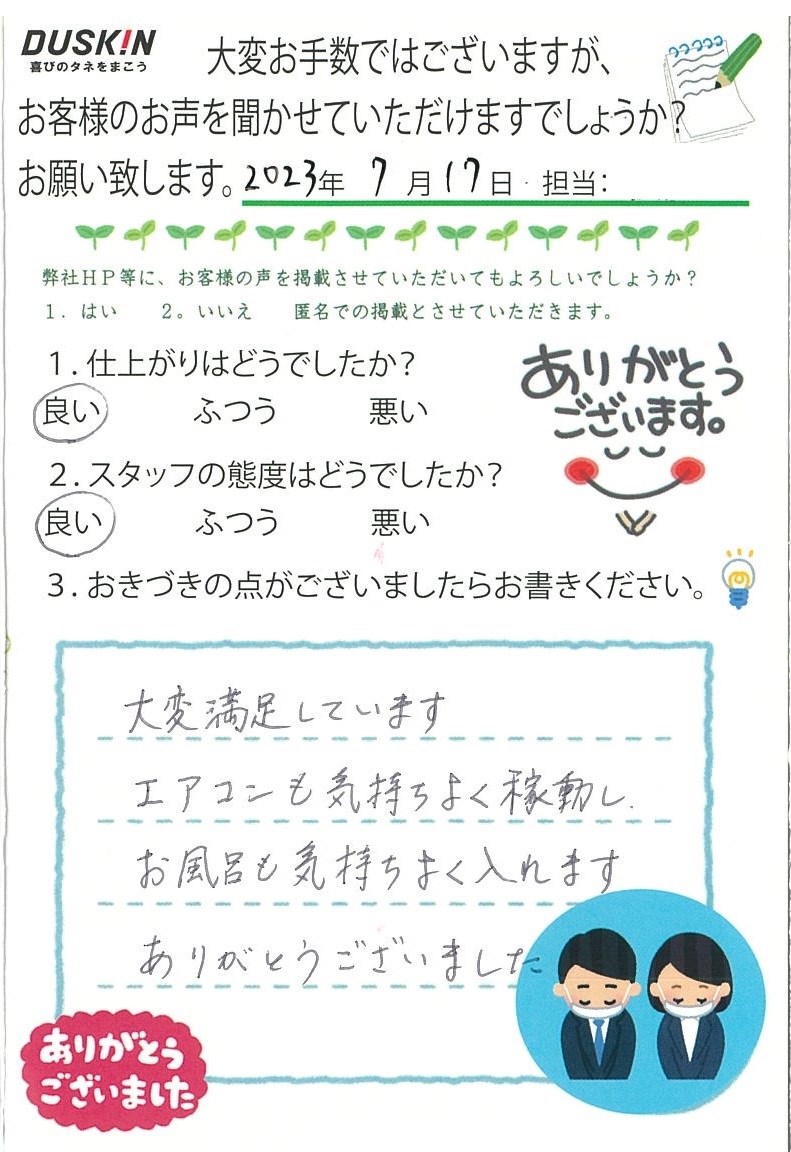 DUSK!N
喜びのタネをまこう
大変お手数ではございますが、
お客様のお声を聞かせていただけますでしょうか?
お願い致します。2023年 7月17日 担当:
弊社HP等に、お客様の声を掲載させていただいてもよろしいでしょうか?
1. はい 2。いいえ 匿名での掲載とさせていただきます。
1.仕上がりはどうでしたか?
良い ふつう 悪い
ありがとう
ございます。
2.スタッフの態度はどうでしたか?
良い ふつう 悪い
3.おきづきの点がございましたらお書きください。
大変満足しています
エアコンも気持ちよく稼動し、
お風呂も気持ちよく入れます
ありがとうございました
ありがとう
ございました